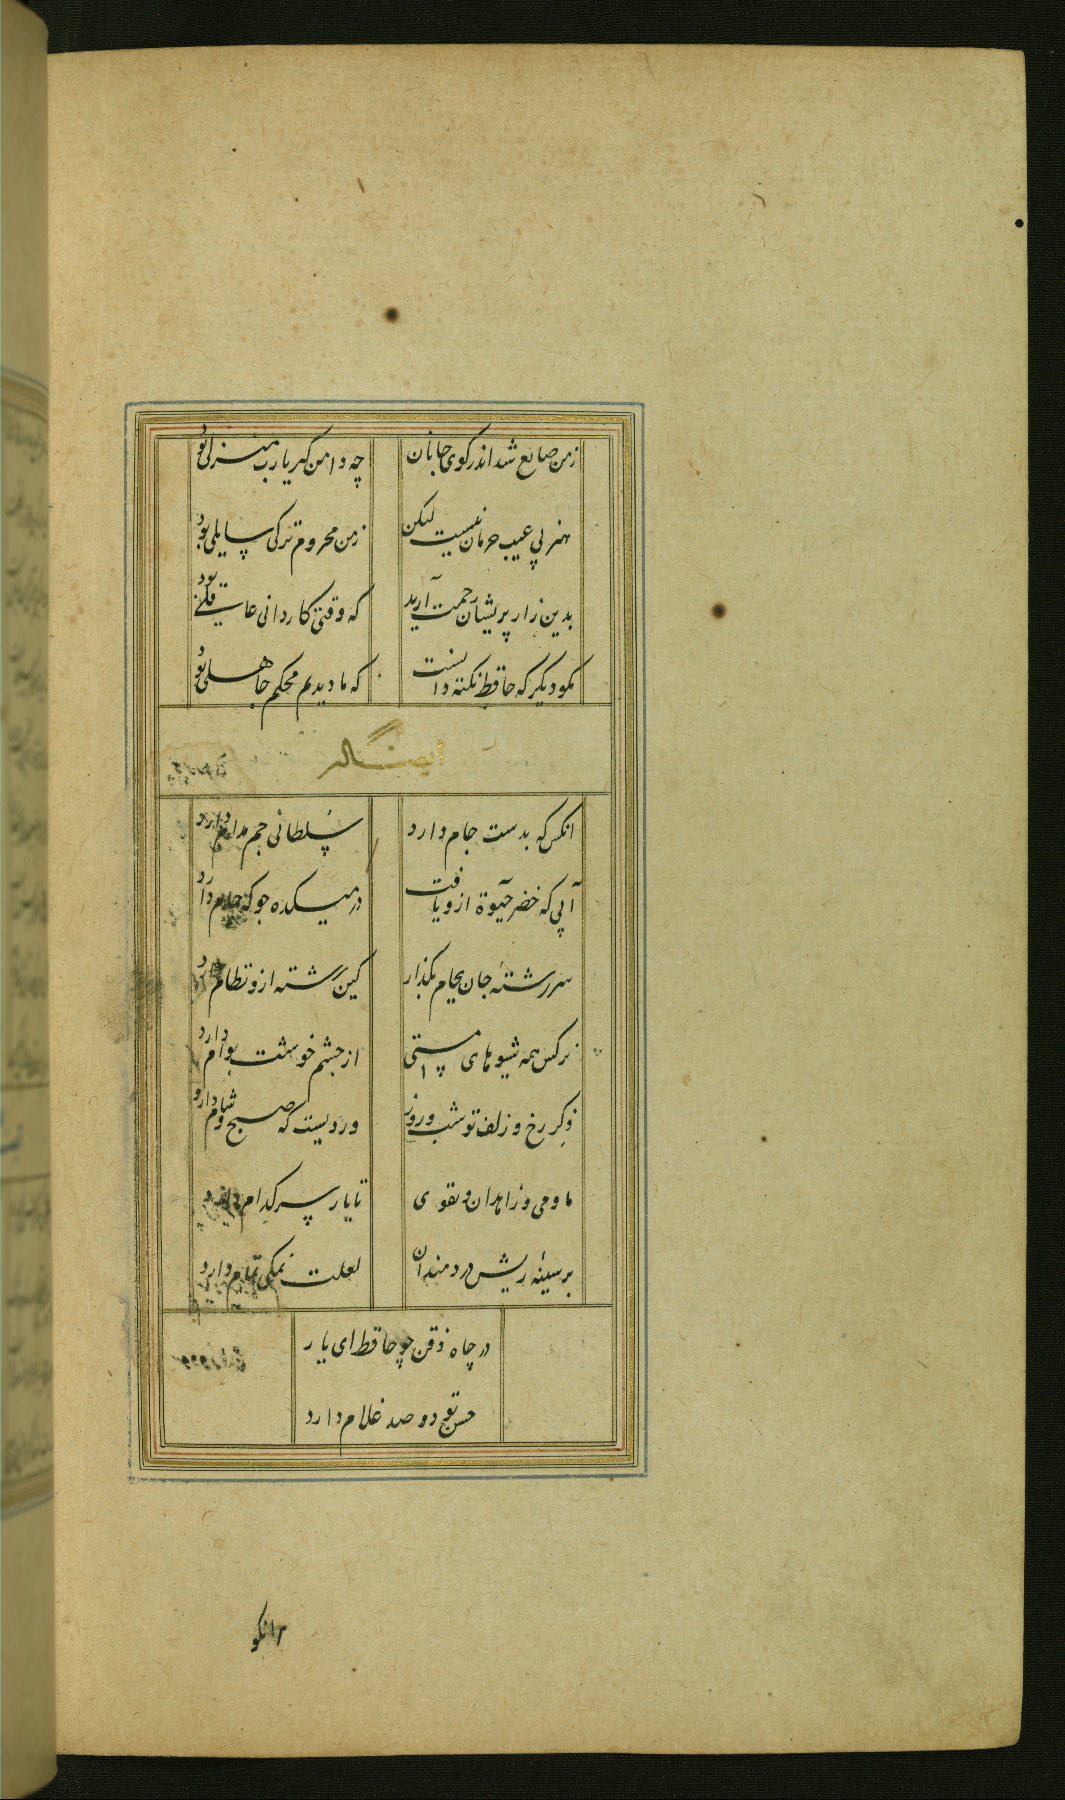 زمن ضایع شد اندر کوی جانان
چه دامن گیر یارب منزلی بود
هنر بی عیب حرمان نیست لیکن
زمن محروم تر کی سایلی بود
بدین زار پریشان رحمت آرید
که وقتی کاردانی عاقلی بود
مکو دیگر که حافظ نکته دانست
که ما دیدیم محکم جاهلی بود
ایضا له
انکس که بدست جام دارد
سلطانی جم مدام دارد
آبی که خضر حیوة ازو یافت
در میکده جو که جام دارد
سررشته جان بجام بگذار
کین رشته ازو نظام دارد
نرکس همه شیوهای مستی
از چشم خوشت بوام دارد
ذکر رخ و زلف تو شب و روز
وردیست که صبح و شام دارد
ما و می و زاهدان و تقوی
تا یار سر کدام دارد
بر سینه ریش دردمندان
لعلت نمکی تمام دارد
در چاه ذقن چو حافظ ای یار
حسن تو دو صد غلام دارد